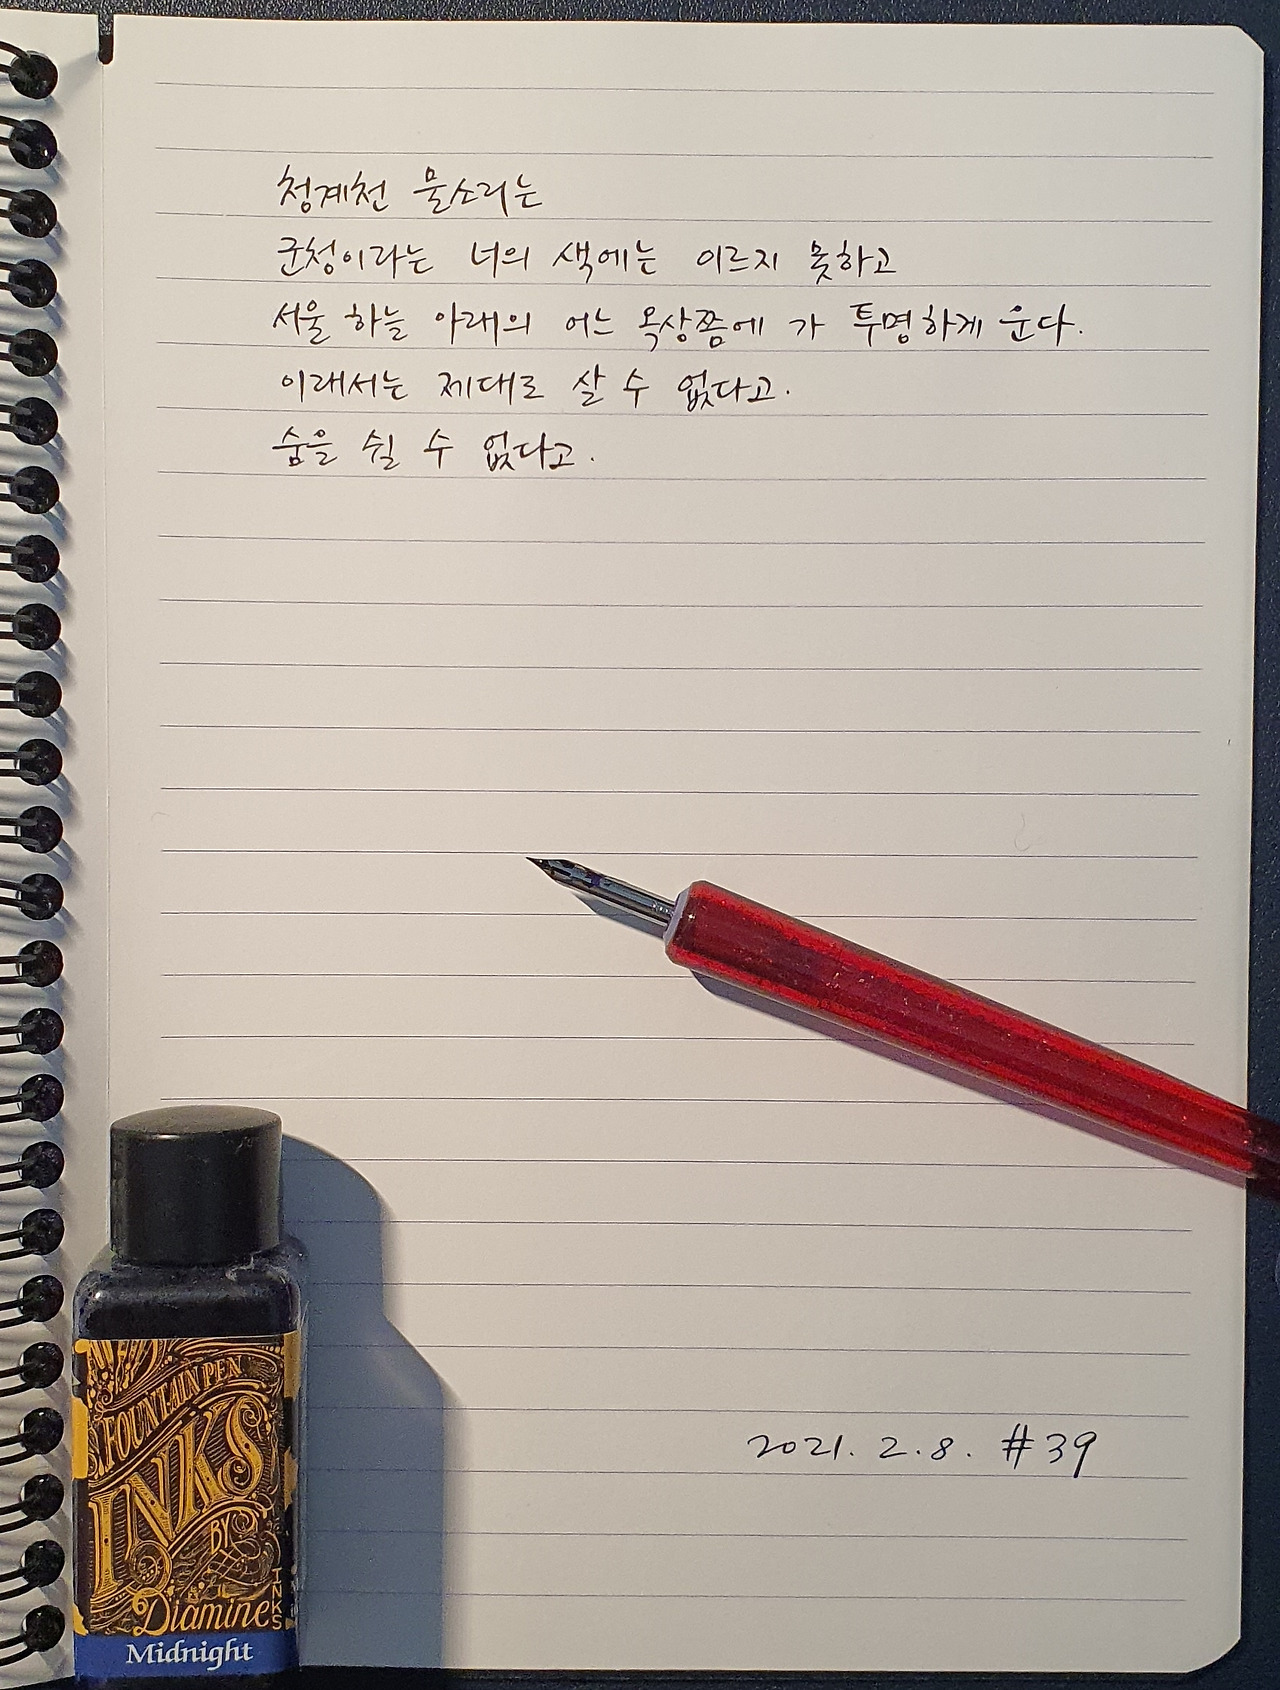 청계천 물소리는
군청이라는 너의 색에는 이르지 못하고
서울 하늘 아래의 어느 옥상쯤에 가 투명하게 운다.
이래서는 제대로 살 수 없다고.
숨을 쉴 수 없다고.
2021. 2. 8. #39
FOUNTAIN PEN
INKS
BY
Diamine
INKS
Midnight